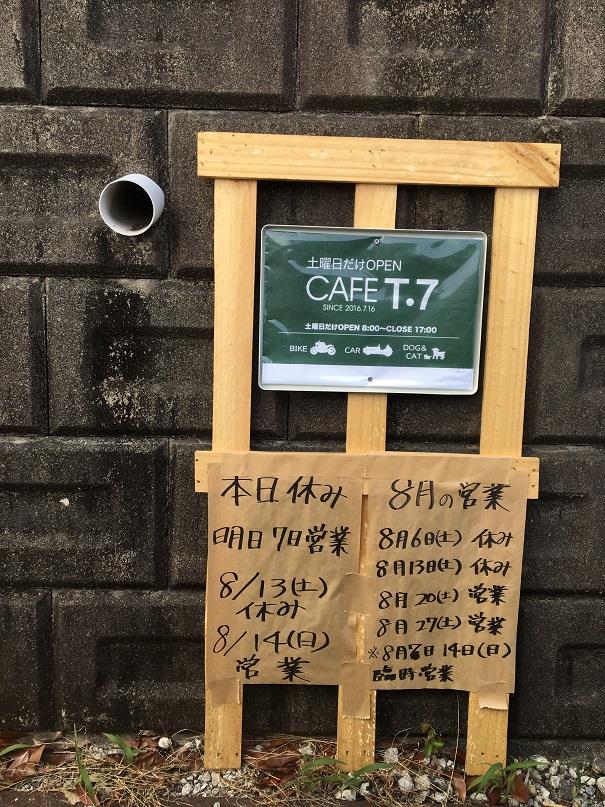 土曜日だけOPEN
CAFE T.7
SINCE 2016.7.16
土曜日だけOPEN 8:00〜CLOSE 17:00
BIKE CAR DOG& CAT
本日休み
明日7日営業
8/13(土)
休み
8/14(日)
営業
8月の営業
8月6日(土) 休み
8月13日(土) 休み
8月20(土) 営業
8月27(土) 営業
※8月7日 14日(日)
臨時営業